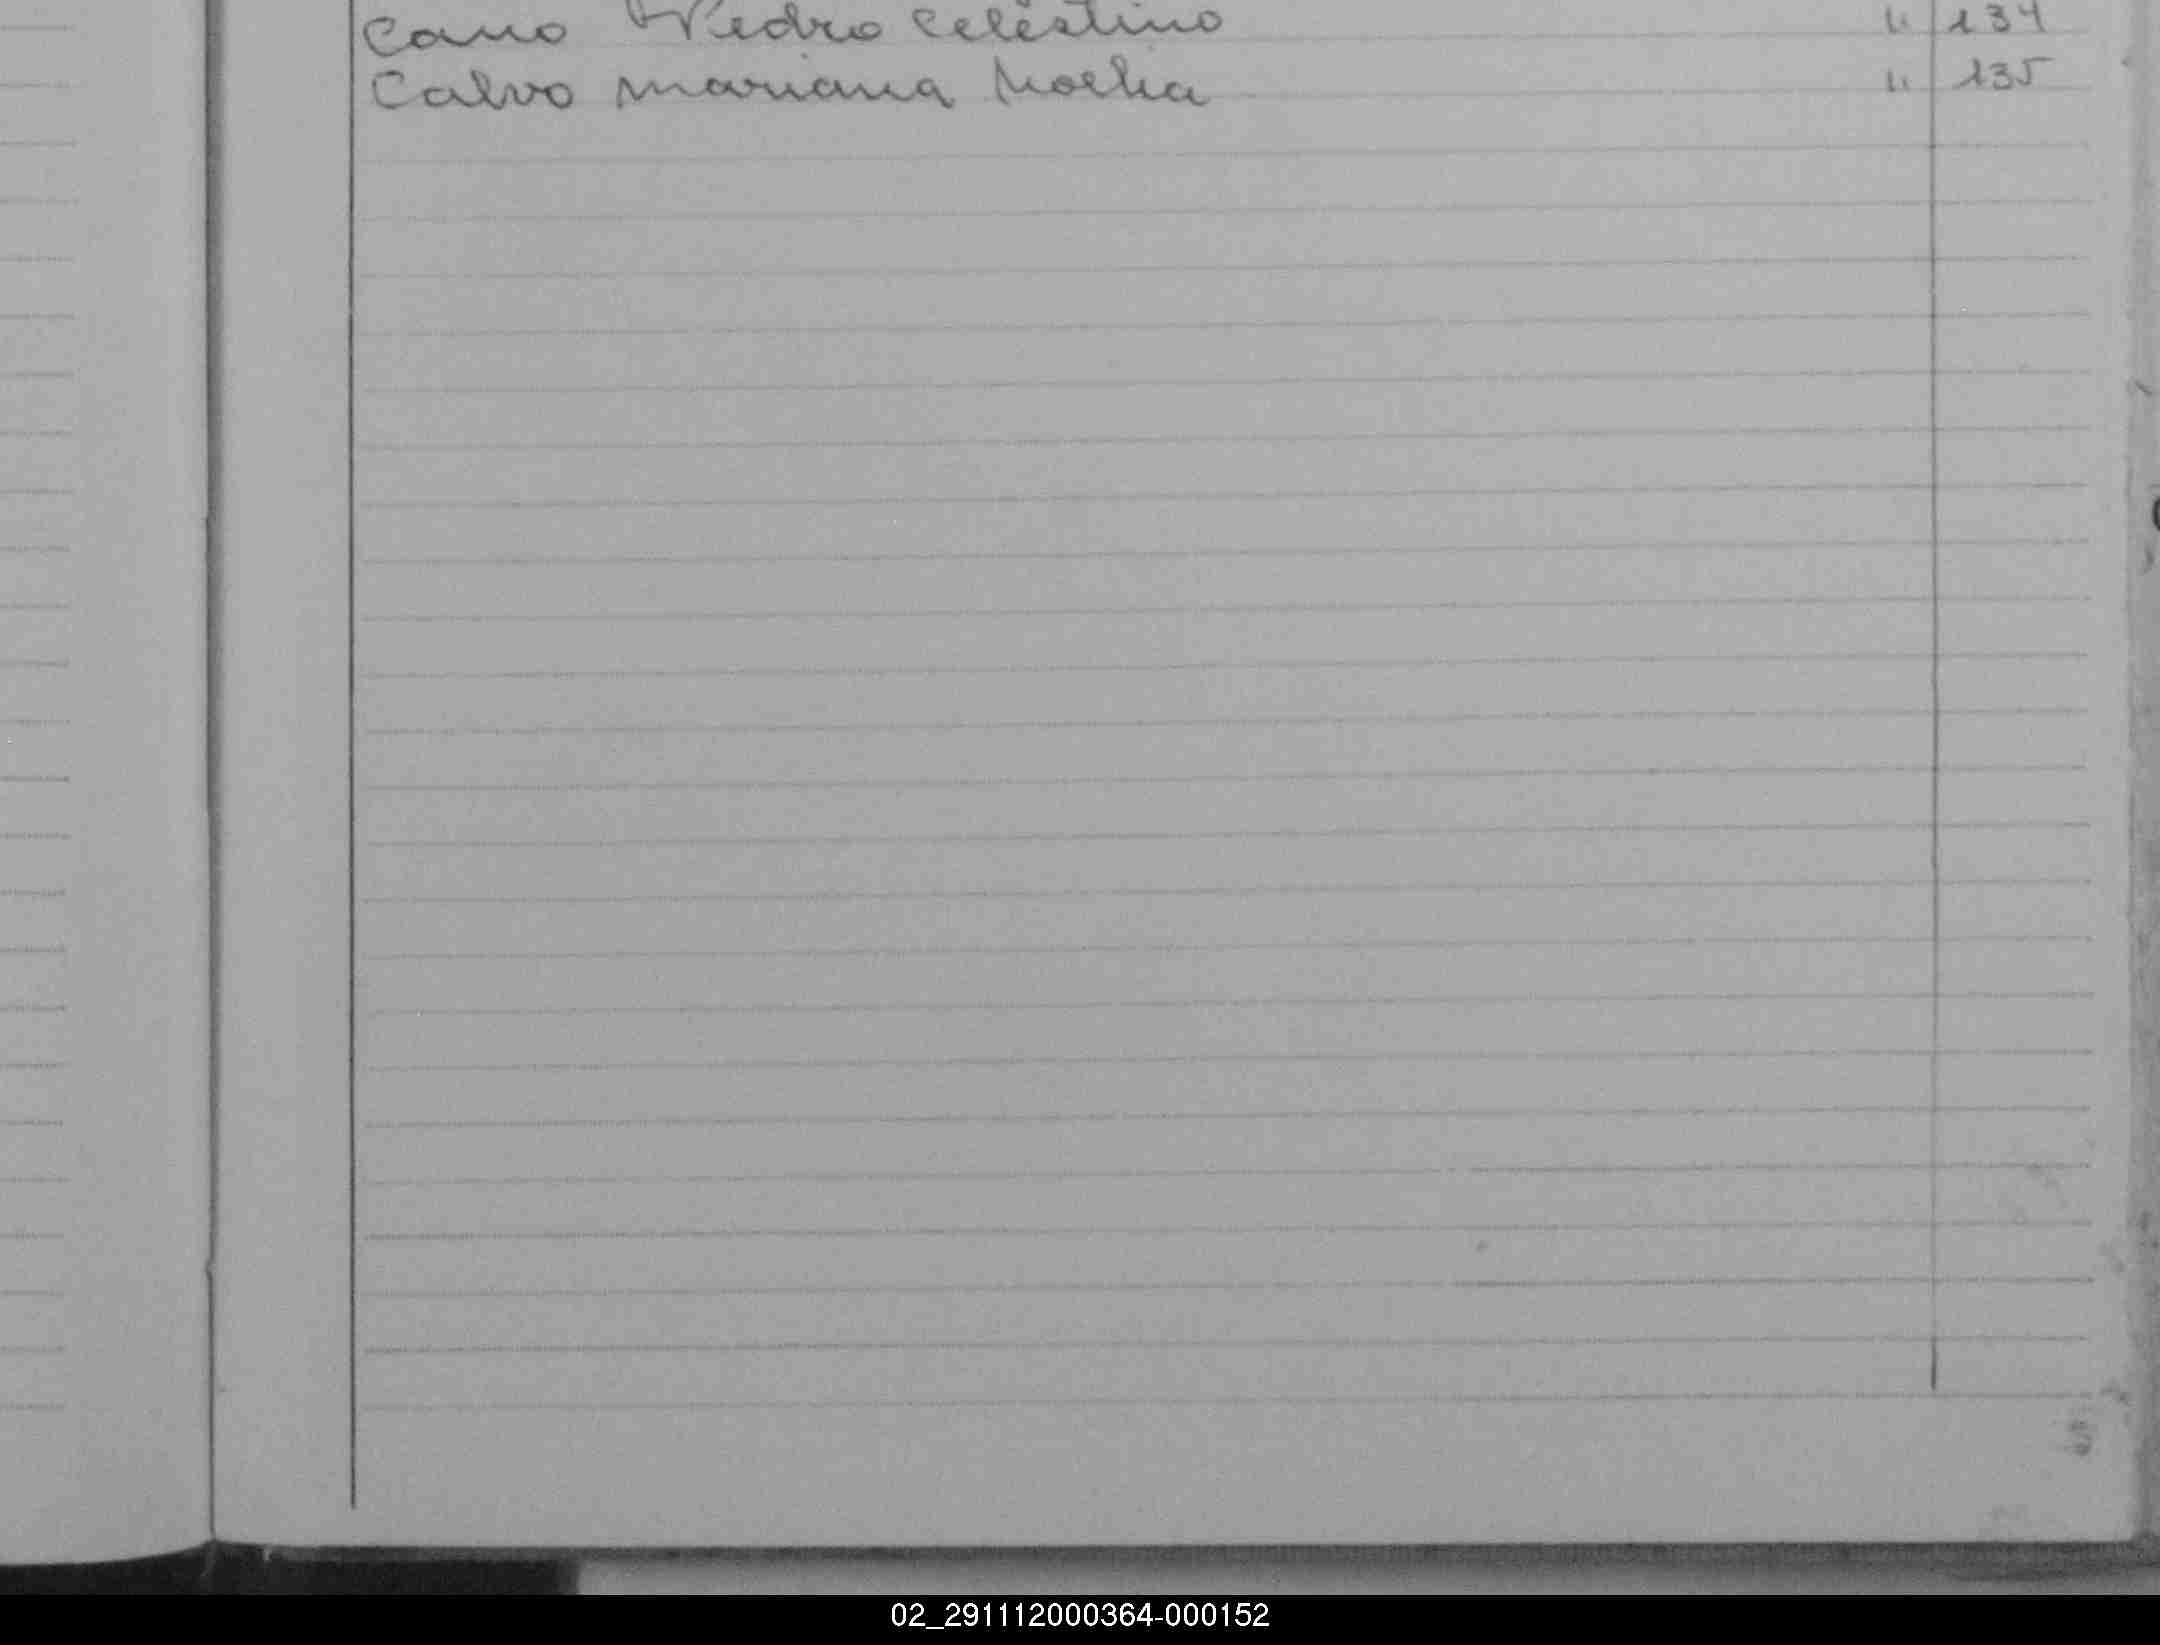 Cano Pedro Celestino " 134
Calvo Mariana Noelia " 135
02_291112000364-000152